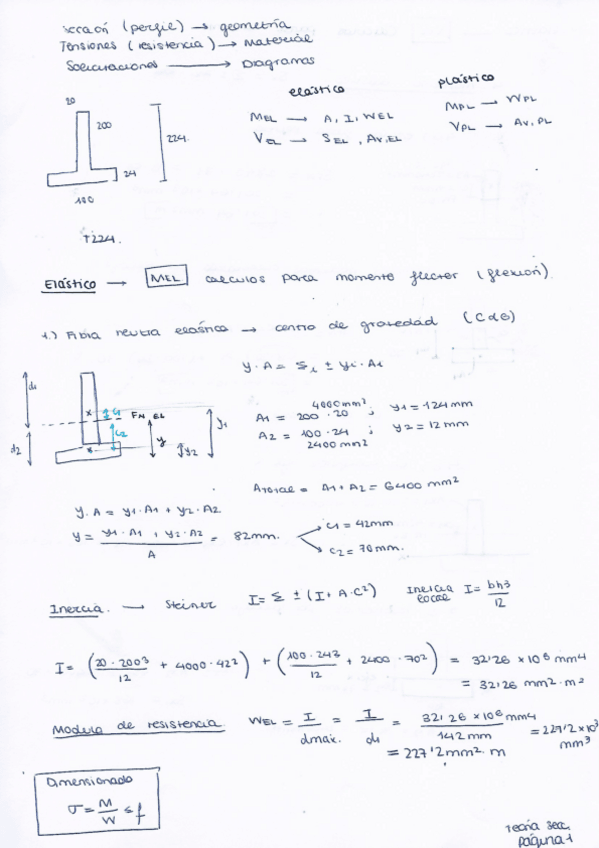 sección (perfil) → geometría
Tensiones (resistencia) → Material
Solicitaciones → Diagramas
elástico
plástico
MEL → A, I, WEL
VEL → SEL, AV,EL
MPL → WPL
VPL → AV,PL
20
200
224
24
100
T224.
Elástico → MEL calculos para momento flector (flexión).
1.) Fibra neutra elástica → centro de gravedad (CdG)
y·A = Σi ± yi·Ai
d1
d2
c1
c2
FN EL
y
y1
y2
4000mm²
A1 = 200·20 ; y1 = 124mm
A2 = 100·24 ; y2 = 12mm
2400 mm²
Atotal = A1+A2 = 6400 mm²
y·A = y1·A1 + y2·A2
y = (y1·A1 + y2·A2) / A = 82mm.
c1 = 42mm
c2 = 70mm.
Inercia. → Steiner I = Σ ± (I + A·C²) Inercia local I = bh3/12
I = (20·2003/12 + 4000·42²) + (100·243/12 + 2400·70²) = 32'26 ×10⁶ mm4
= 32'26 mm²·m²
Modulo de resistencia. WEL = I/dmax. = I/d1 = 32'26×10⁶mm4/142mm = 227'2×10³ mm³
= 227'2mm²·m
Dimensionado
σ = M/W ≤ f
Teoría Secc.
Página 1